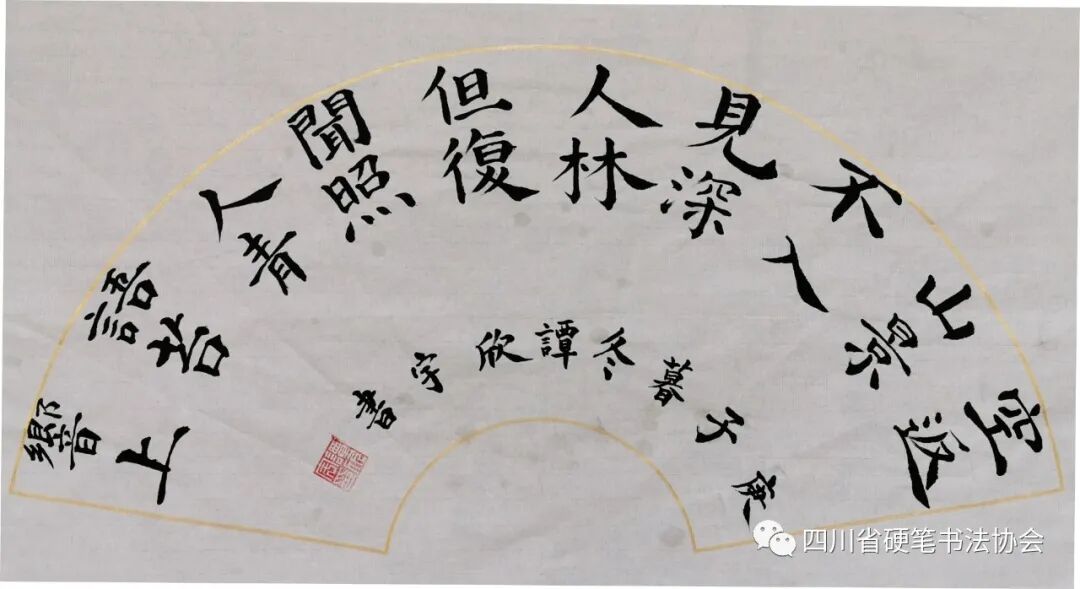 空山不見人但聞人語響
返景入深林復照青苔上
庚子暮冬譚欣宇書
四川省硬笔书法协会